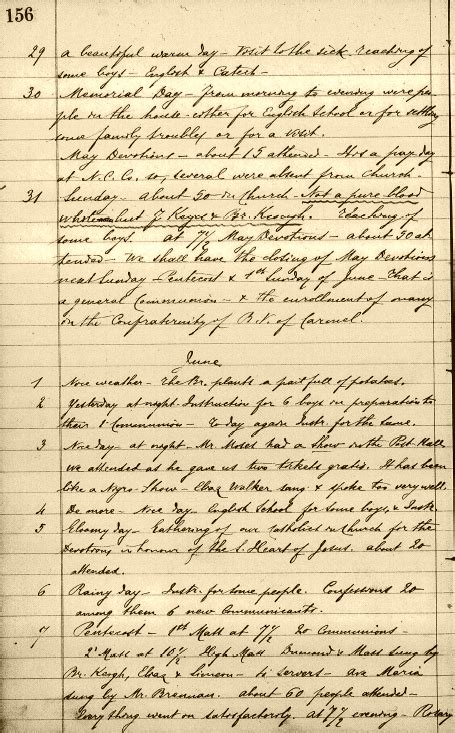 156
29 a beautiful warm day - Visit to the sick, teaching of
some boys - English & Catech -
30 Memorial Day - From morning to evening were peo-
ple in the house - either for English School or for settling
some family troubles or for a visit.
May Devotions - about 15 attended - It is a pay day
at N.C.Co. so, several were absent from Church.
31 Sunday - about 50 in Church - Not a pure blood
White but J. Kayes & Br. Keough. Teaching of
some boys. at 7 1/2 May Devotions - about 30 at
tended - We shall have the closing of May Devotions
next Sunday - Pentecost & 1st Sunday of June - that is
a general Communion - & the enrollment of many
in the Confraternity of B.V. of Carmel.
June
1 Nice weather - The Br. plants a part full of potatoes.
2 Yesterday at night Instruction for 6 boys in preparation to
their 1 Communion - To day again Instr. for the same.
3 Nice day - at night - Mr. Moses had a Show in the Post Hall
we attended as he gave us two tickets gratis. It has been
like a Negro-Show - Walker sang & spoke too very well.
4 De more - Nice day - English School for some boys, & Instr.
5 Gloomy day - Gathering of our Catholics in Church for the
Devotions in honour of the S. Heart of Jesus. about 20
attended.
6 Rainy day - Instr. for some people. Confessions 20
among them 6 new Communicants.
7 Pentecost - 1st Mass at 7 1/2 20 Communions -
2' Mass at 10 1/2 High Mass Dumond's Mass sung by
Br. Keogh, & Simeon - to servers - Ave Maria
sung by Mr. Brennan. about 60 people attended -
Everything went on satisfactorily. at 7 1/2 evening - Rosary